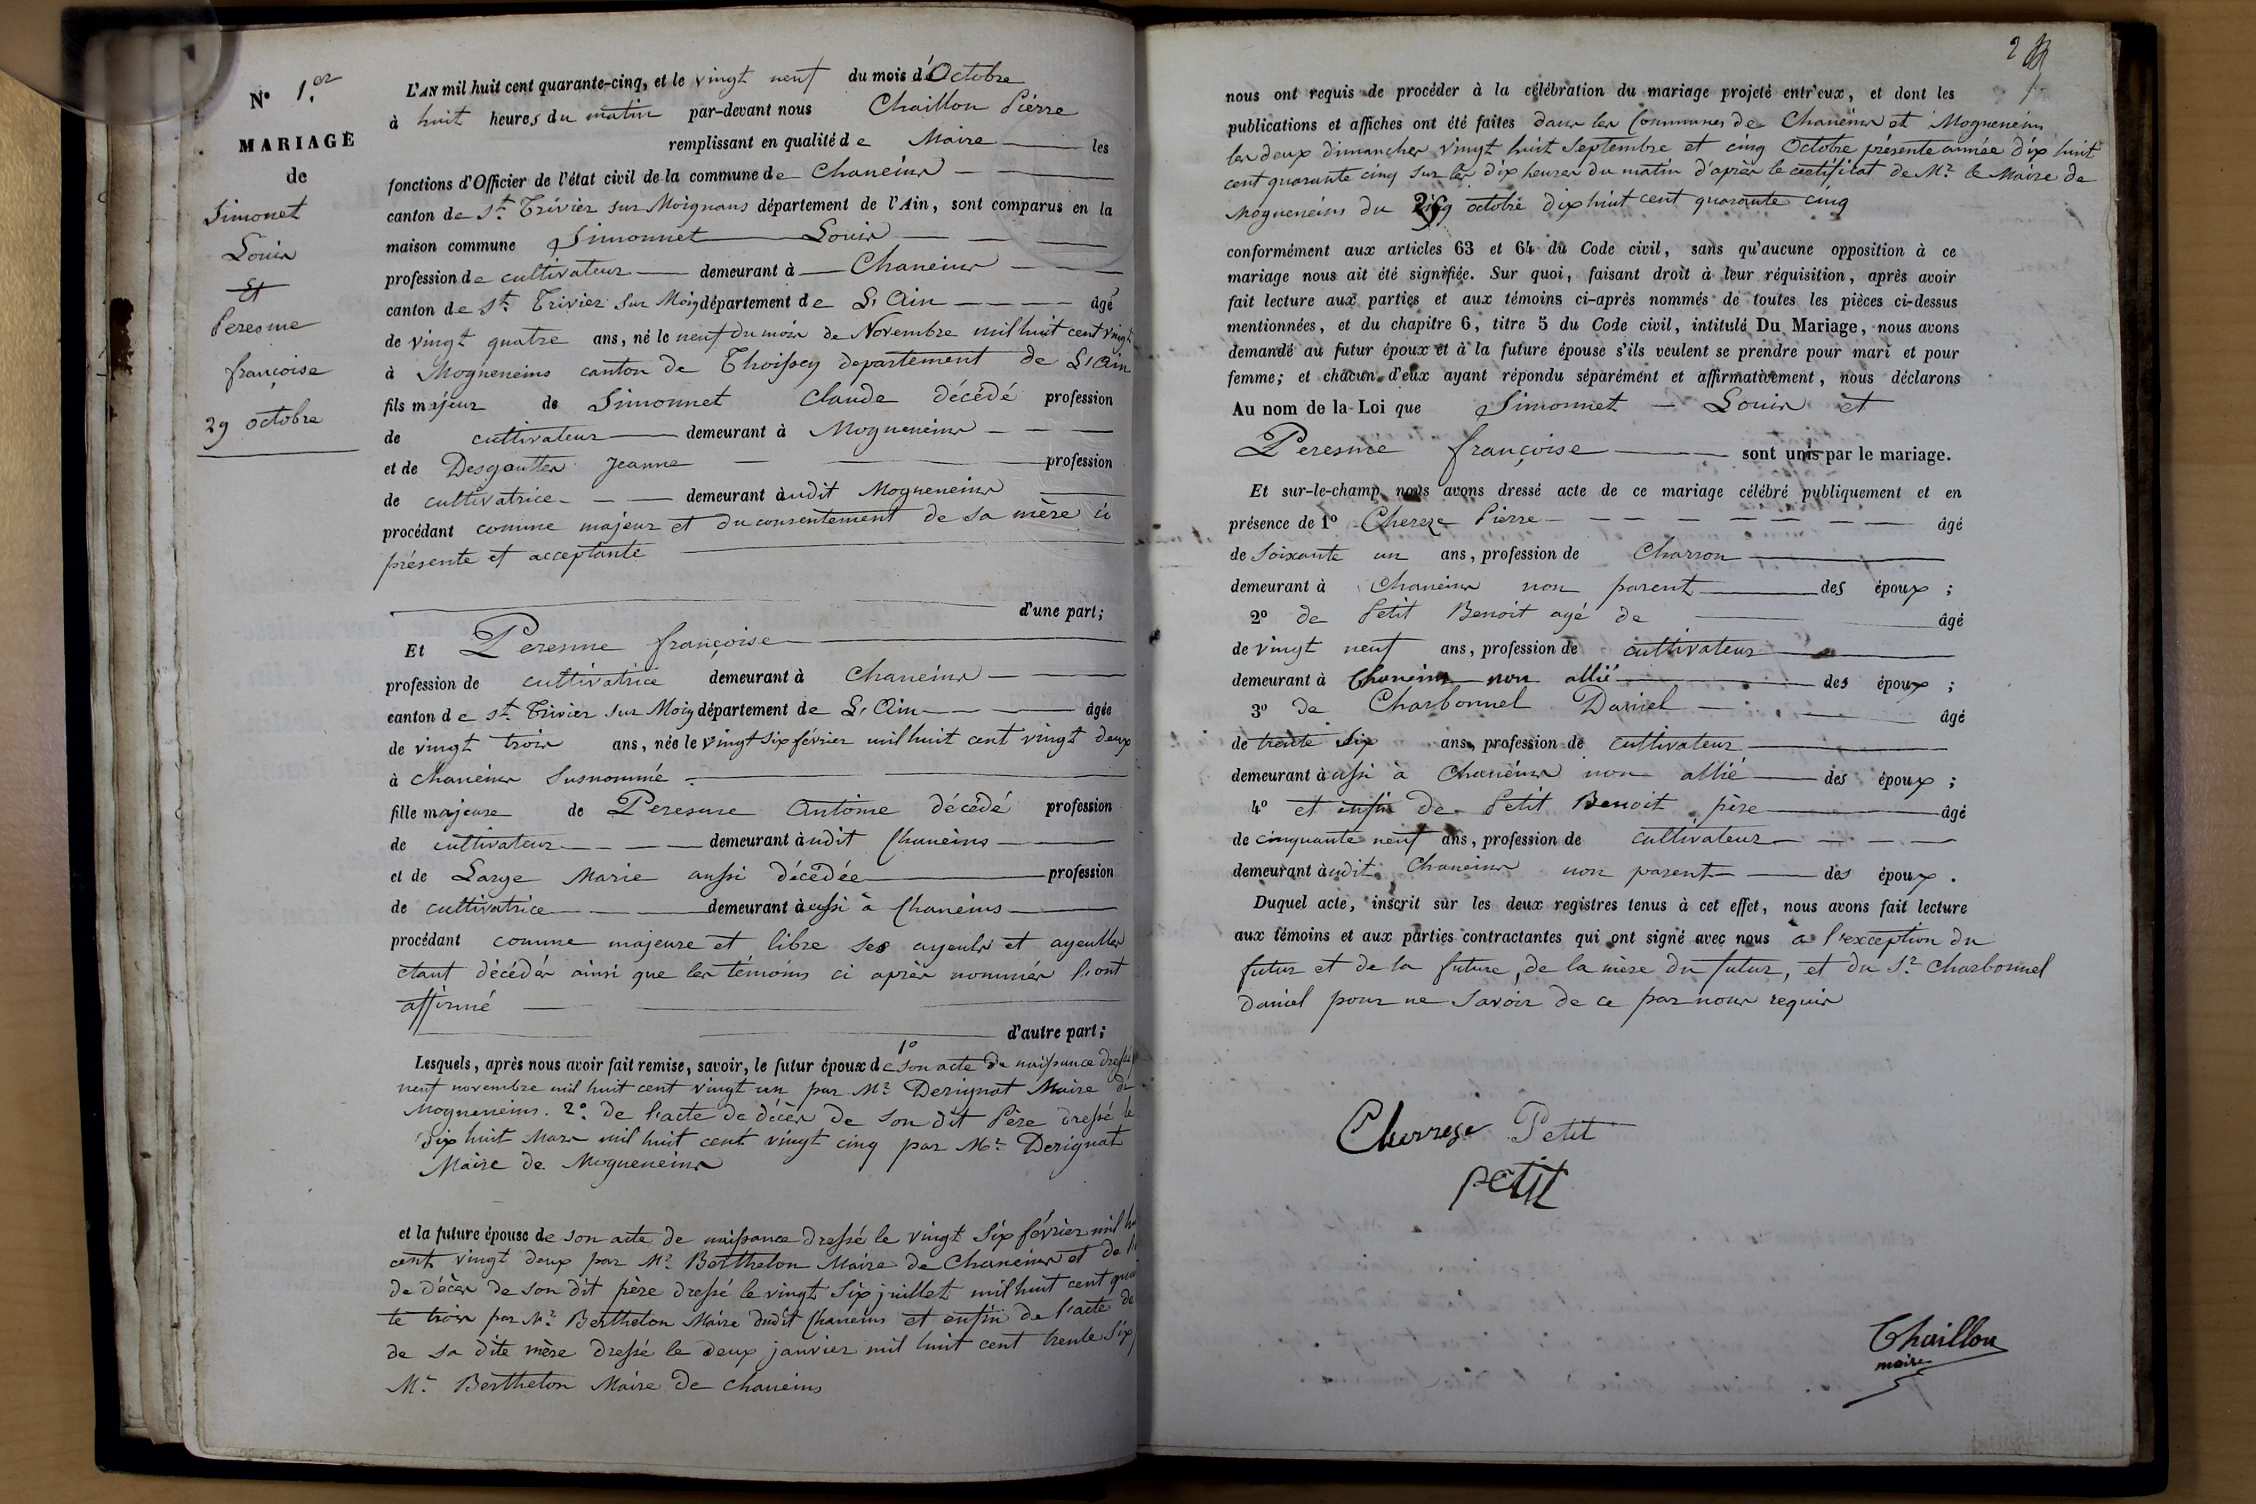 N° 1.er
MARIAGE
de
Simonet
Louis
Et
Peresme
françoise
29 octobre
L'AN mil huit cent quarante-cinq, et le vingt neuf du mois d'Octobre
à huit heures du matin par-devant nous Chaillon Pierre
remplissant en qualité de Maire les
fonctions d'Officier de l'état civil de la commune de Chaneins
canton de St. Trivier sur Moignans département de l'Ain, sont comparus en la
maison commune Simonnet Louis
profession de cultivateur demeurant à Chaneins
canton de St. Trivier sur Moig département de L'Ain âgé
de vingt quatre ans, né le neuf du mois de Novembre mil huit cent vingt
à Mogneneins canton de Thoissey departement de L'Ain
fils majeur de Simonnet Claude décédé profession
de cultivateur demeurant à Mogneneins
et de Desgoutter Jeanne profession
de cultivatrice demeurant audit Mogneneins
procédant comme majeur et du consentement de sa mère ici
présente et acceptante
d'une part;
Et Peresme françoise
profession de cultivatrice demeurant à Chaneins
canton de St. Trivier sur Moig département de L'Ain âgée
de vingt trois ans, née le vingt six février mil huit cent vingt deux
à chaneins susnommé
fille majeure de Peresme Antoine décédé profession
de cultivateur demeurant audit Chaneins
et de Large Marie aussi décédée profession
de cultivatrice demeurant aussi à Chaneins
procédant comme majeure et libre ses ayeuls et ayeulles
étant décédés ainsi que les témoins ci après nommés l'ont
affirmé
d'autre part;
Lesquels, après nous avoir fait remise, savoir, le futur époux de 1° son acte de naissance dressé
neuf novembre mil huit cent vingt un par Mr Derignat Maire de
Mogneneins. 2°. de l'acte de décès de son dit Père dressé le
dix huit Mars mil huit cent vingt cinq par Mr Derignat
Maire de Mogneneins
et la future épouse de son acte de naissance dressé le vingt six février mil hu
cent vingt deux par Mr Berthelon Maire de Chaneins et de l'
de décès de son dit père dressé le vingt six juillet mil huit cent quar
te trois par Mr Berthelon Maire dudit Chaneins et enfin de l'acte de
de sa dite mère dressé le deux janvier mil huit cent trente six
Mr Berthelon Maire de chaneins
2
nous ont requis de procéder à la célébration du mariage projeté entr'eux, et dont les
publications et affiches ont été faites dans les Communes de Chaneins et Mogneneins
les deux dimanches vingt huit septembre et cinq Octobre présente année dix huit
cent quarante cinq sur les dix heures du matin d'après le certificat de Mr le Maire de
Mogneneins du octobre dix huit cent quarante cinq
conformément aux articles 63 et 64 du Code civil, sans qu'aucune opposition à ce
mariage nous ait été signifiée. Sur quoi, faisant droit à leur réquisition, après avoir
fait lecture aux parties et aux témoins ci-après nommés de toutes les pièces ci-dessus
mentionnées, et du chapitre 6, titre 5 du Code civil, intitulé Du Mariage, nous avons
demandé au futur époux et à la future épouse s'ils veulent se prendre pour mari et pour
femme; et chacun d'eux ayant répondu séparément et affirmativement, nous déclarons
Au nom de la Loi que Simonnet Louis et
Peresme françoise sont unis par le mariage.
Et sur-le-champ nous avons dressé acte de ce mariage célébré publiquement et en
présence de 1° Chereze Pierre âgé
de soixante un ans, profession de Charron
demeurant à Chaneins non parent des époux;
2° de Petit Benoit agé de âgé
de vingt neuf ans, profession de cultivateur
demeurant à Chaneins non allié des époux;
3° de Charbonnel Daniel âgé
de trente six ans, profession de cultivateur
demeurant aussi à Chaneins non allié des époux;
4° et enfin de Petit Benoit père âgé
de cinquante neuf ans, profession de cultivateur
demeurant audit Chaneins non parent des époux.
Duquel acte, inscrit sur les deux registres tenus à cet effet, nous avons fait lecture
aux témoins et aux parties contractantes qui ont signé avec nous à l'exception du
futur et de la future, de la mère du futur, et du Sr Charbonnel
daniel pour ne savoir de ce par nous requis
Cherreze Petit
petit
Chaillon
maire